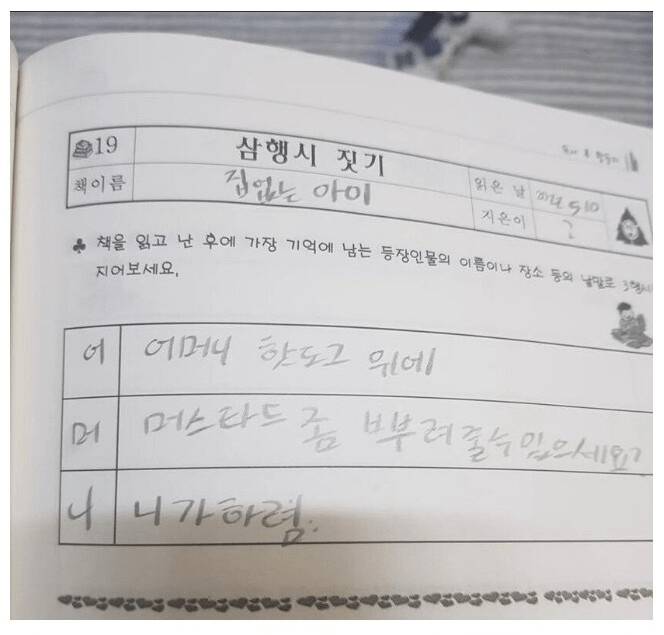 19
삼행시 짓기
책이름
집없는 아이
읽은 날
510
지은이
?
♣ 책을 읽고 난 후에 가장 기억에 남는 등장인물의 이름이나 장소 등의 낱말로 3행시
지어보세요.
어
어머니 핫도그 위에
머
머스타드 좀 뿌려줄수있으세요?
니
니가하렴.